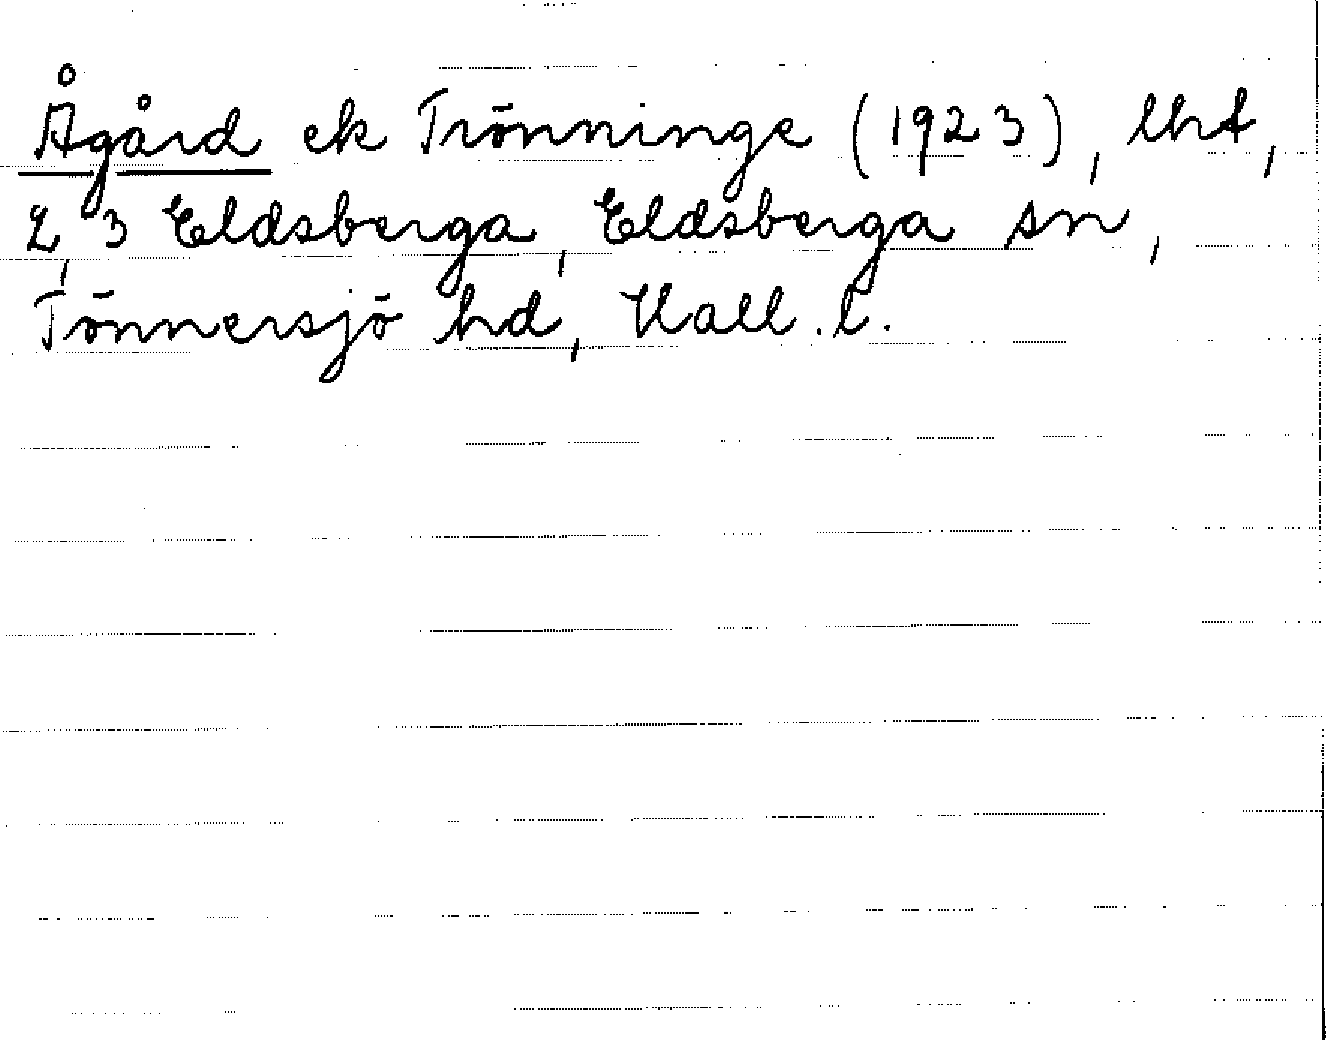 Ågård ek Trönninge (1923), lht,
2, 3 Eldsberga, Eldsberga sn,
Tönnersjö hd, Hall. l.